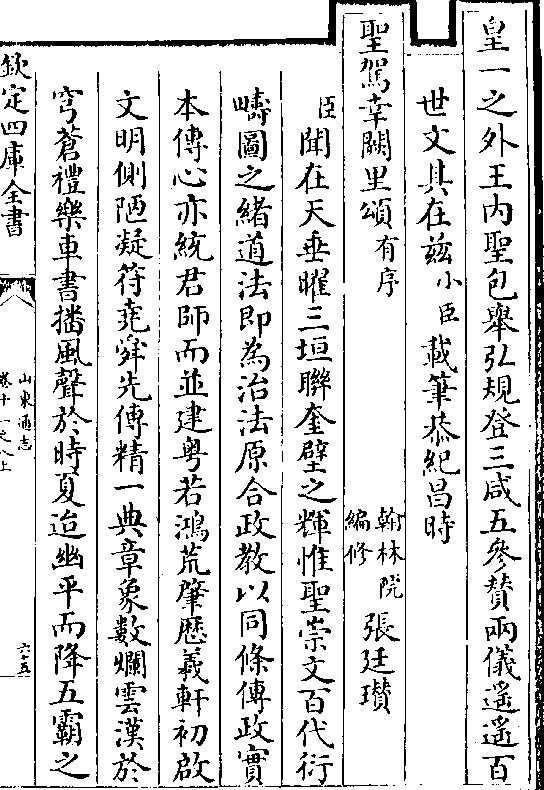 皇一之外王内聖包舉弘規登三咸五參贊兩儀遥遥百
世文其在兹小臣載筆恭紀昌時
聖駕幸闕里頌有序
翰林院
編修
張廷瓚
臣聞在天垂曜三垣聯奎壁之輝惟聖崇文百代衍
疇圖之緒道法即為治法原合政教以同條傳政實
本傳心亦統君師而並建粤若鴻荒肇歴羲軒初啟
文明側陋凝符堯舜先傳精一典章象數爛雲漢於
穹蒼禮樂車書播風聲於時夏迨幽平而降五霸之
欽定四庫全書
山東通志
卷十一之八上
六十五